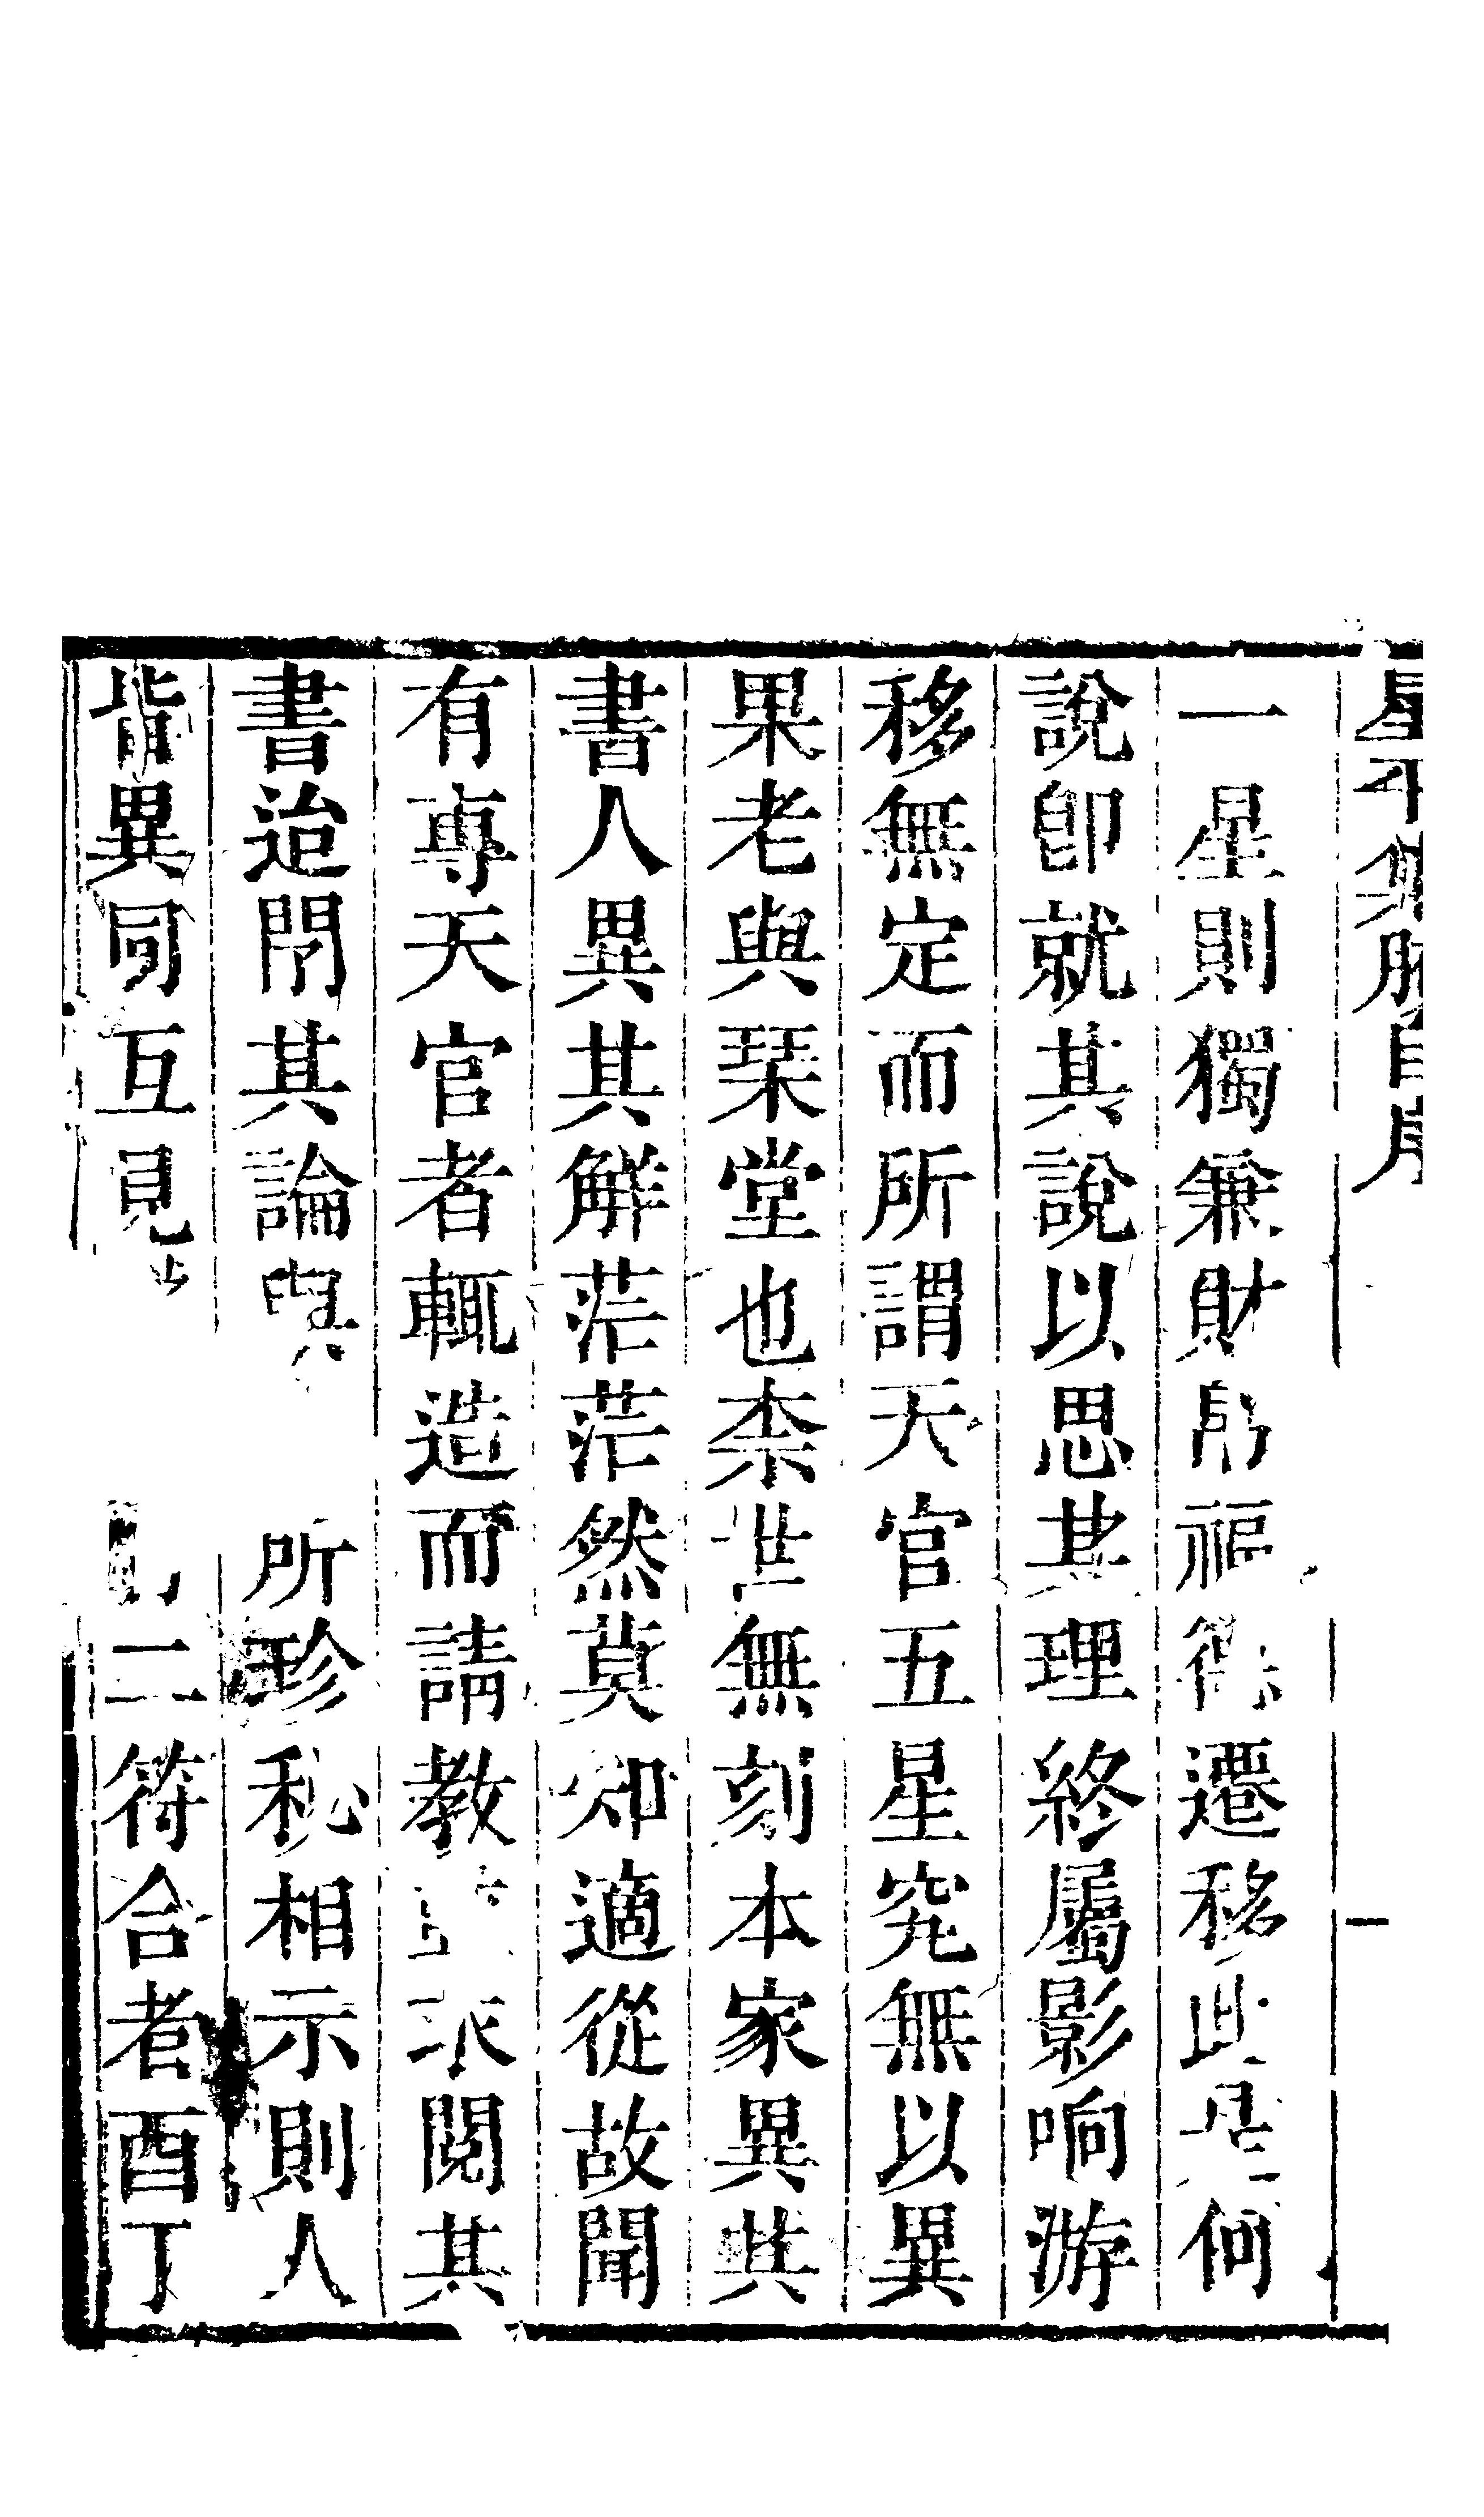 一星則獨兼財帛福德遷移此是何
說卽就其說以思其理終屬影响游
移無定而所謂天官五星究無以異
果老與琹堂也柰世無刻本家異其
書人異其解茫茫然莫知適從故聞
有專天官者輒造而請教求閱其
書迨閱其論與所珍秘相示則人
皆異同互見二符合者酉丁